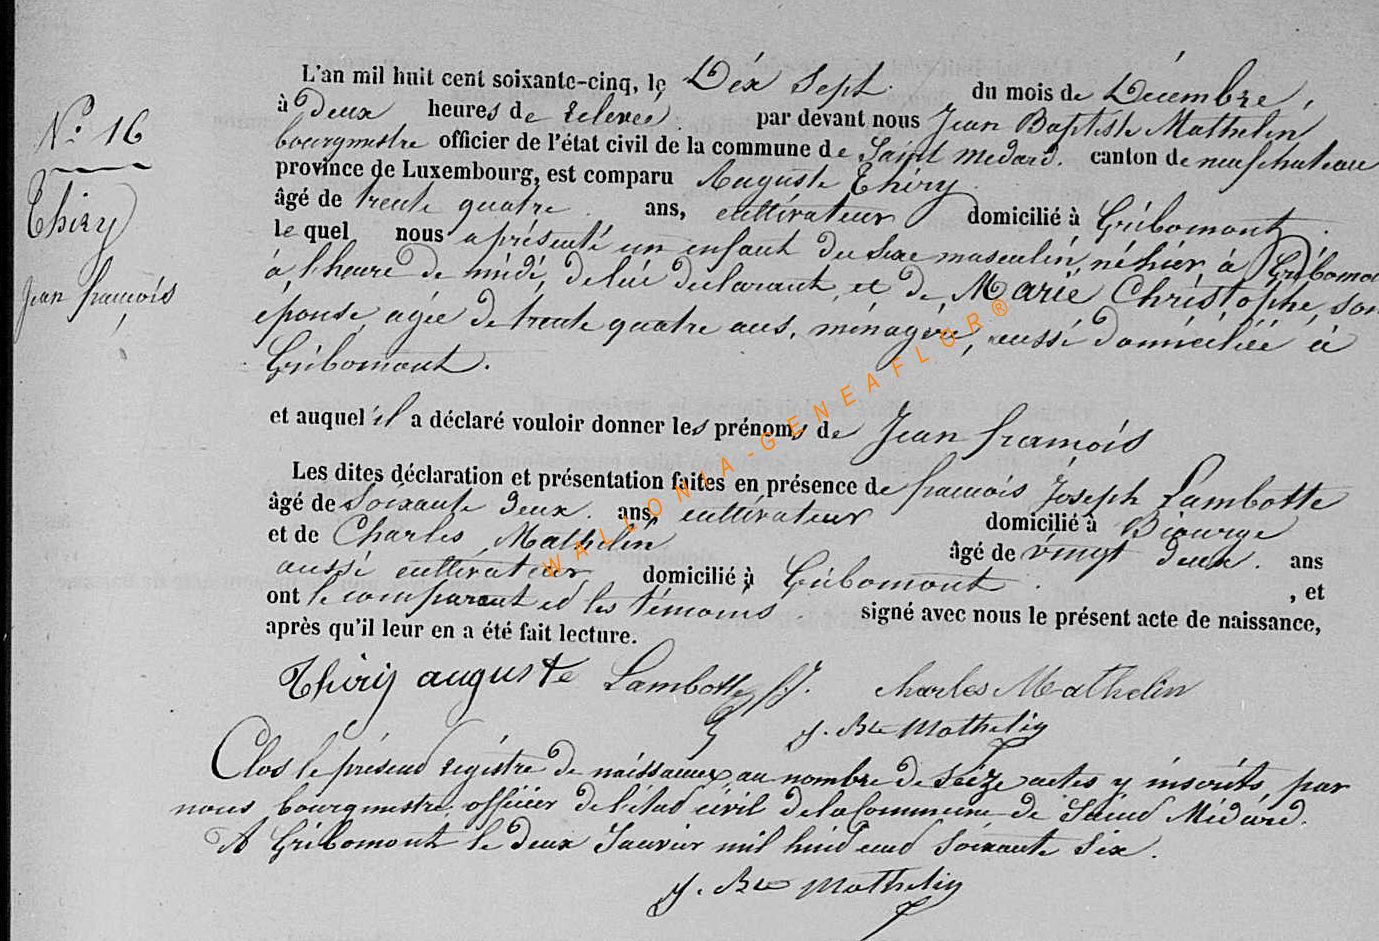 N° 16
Thiry
Jean françois
L'an mil huit cent soixante-cinq, le Dix Sept du mois de Décembre,
à deux heures de relevée, par devant nous Jean Baptiste Mathelin
bourgmestre officier de l'état civil de la commune de Saint Medard. canton de neufchateau
province de Luxembourg, est comparu Auguste Thiry
âgé de trente quatre ans, cultivateur domicilié à Gribomont.
lequel nous a présenté un enfant du sexe masculin, né hier, à Gribomont
à l'heure de midi, de lui declarant, et de Marie Christophe, son
épouse agée de trente quatre ans, ménagère, aussi domiciliée à
Gribomont.
et auquel il a déclaré vouloir donner les prénoms de Jean françois
Les dites déclaration et présentation faites en présence de françois Joseph Lambotte
âgé de Soixante deux. ans, cultivateur domicilié à Biourge
et de Charles Mathelin âgé de vingt deux. ans
aussi cultivateur domicilié à Gribomont. , et
ont le comparant et les témoins. signé avec nous le présent acte de naissance,
après qu'il leur en a été fait lecture.
Thiry auguste Lambotte f. J. Charles Mathelin
J. Bte Mathelin
Clos le présent régistre de naissances, au nombre de Seize actes y inscrits, par
nous bourgmestre, officier de l'état civil de la Commune de Saint Médard.
A Gribomont le deux Janvier mil huit cent Soixante Six.
J. Bte Mathelin
WALLONIA-GENEAFLOR®